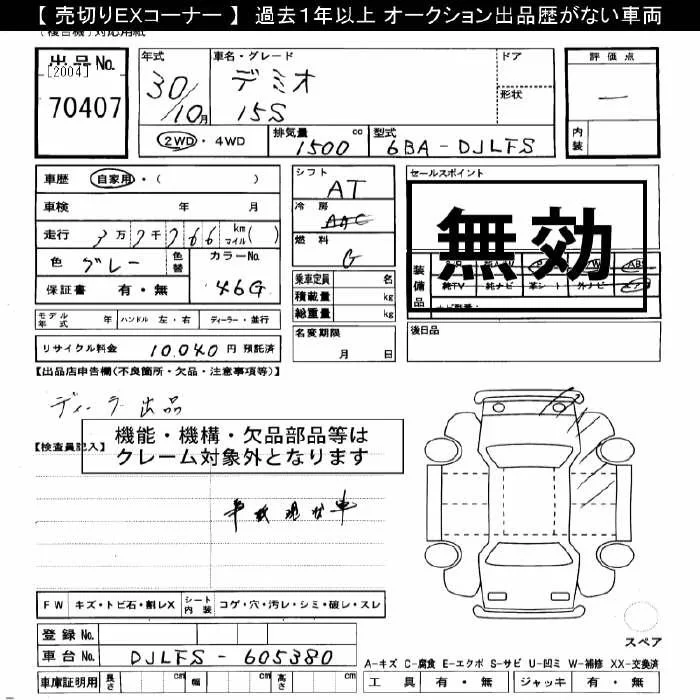 【 売切りEXコーナー 】 過去１年以上 オークション出品歴がない車両
出品No.
[2004]
70407
年式 30/10月
車名・グレード デミオ 15S
ドア
形状
評価点 一
内装
2WD ・ 4WD
排気量 1500 cc
型式 6BA - DJLFS
車歴 自家用・( )
車検 年 月
走行 3万7千766 km マイル( )
色 グレー 色替 カラーNo. 46G
保証書 有・無
シフト AT
冷房 AAC
燃料 G
乗車定員 名
積載量 kg
総重量 kg
名変期限 月 日
セールスポイント
無効
装備品 純TV 純ナビ 革シート 外ナビ エアB
後日品
モデル年式 年 ハンドル 左・右 ディーラー・並行
リサイクル料金 10,040 円 預託済
【出品店申告欄(不良箇所・欠品・注意事項等)】
ディーラー出品
【検査員記入】
機能・機構・欠品部品等は
クレーム対象外となります
FW キズ・トビ石・割レX シート内装 コゲ・穴・汚レ・シミ・破レ・スレ
登録 No.
車台 No. DJLFS - 605380
車庫証明用 長さ cm 幅 cm 高さ cm
スペア
A-キズ C-腐食 E-エクボ S-サビ U-凹ミ W-補修 XX-交換済
工具 有・無 ジャッキ 有・無